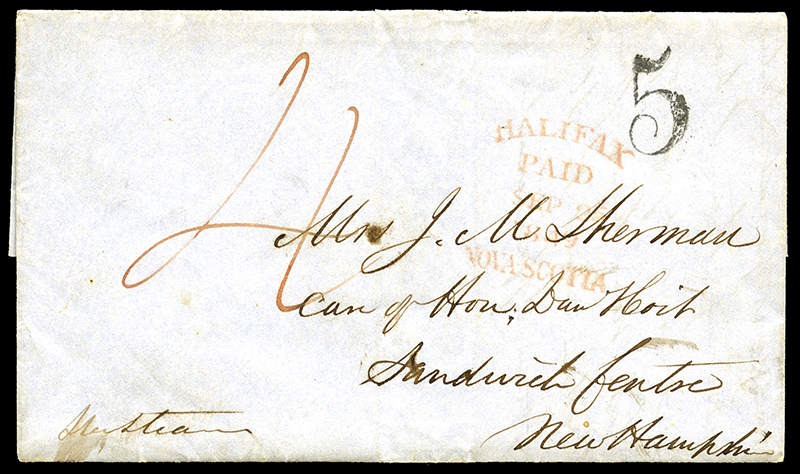 5
HALIFAX
PAID
SEP
NOVA SCOTIA
4
Mrs J. M. Sherman
care of Hon. Dan Hoit
Sandwich Centre
New Hampshire